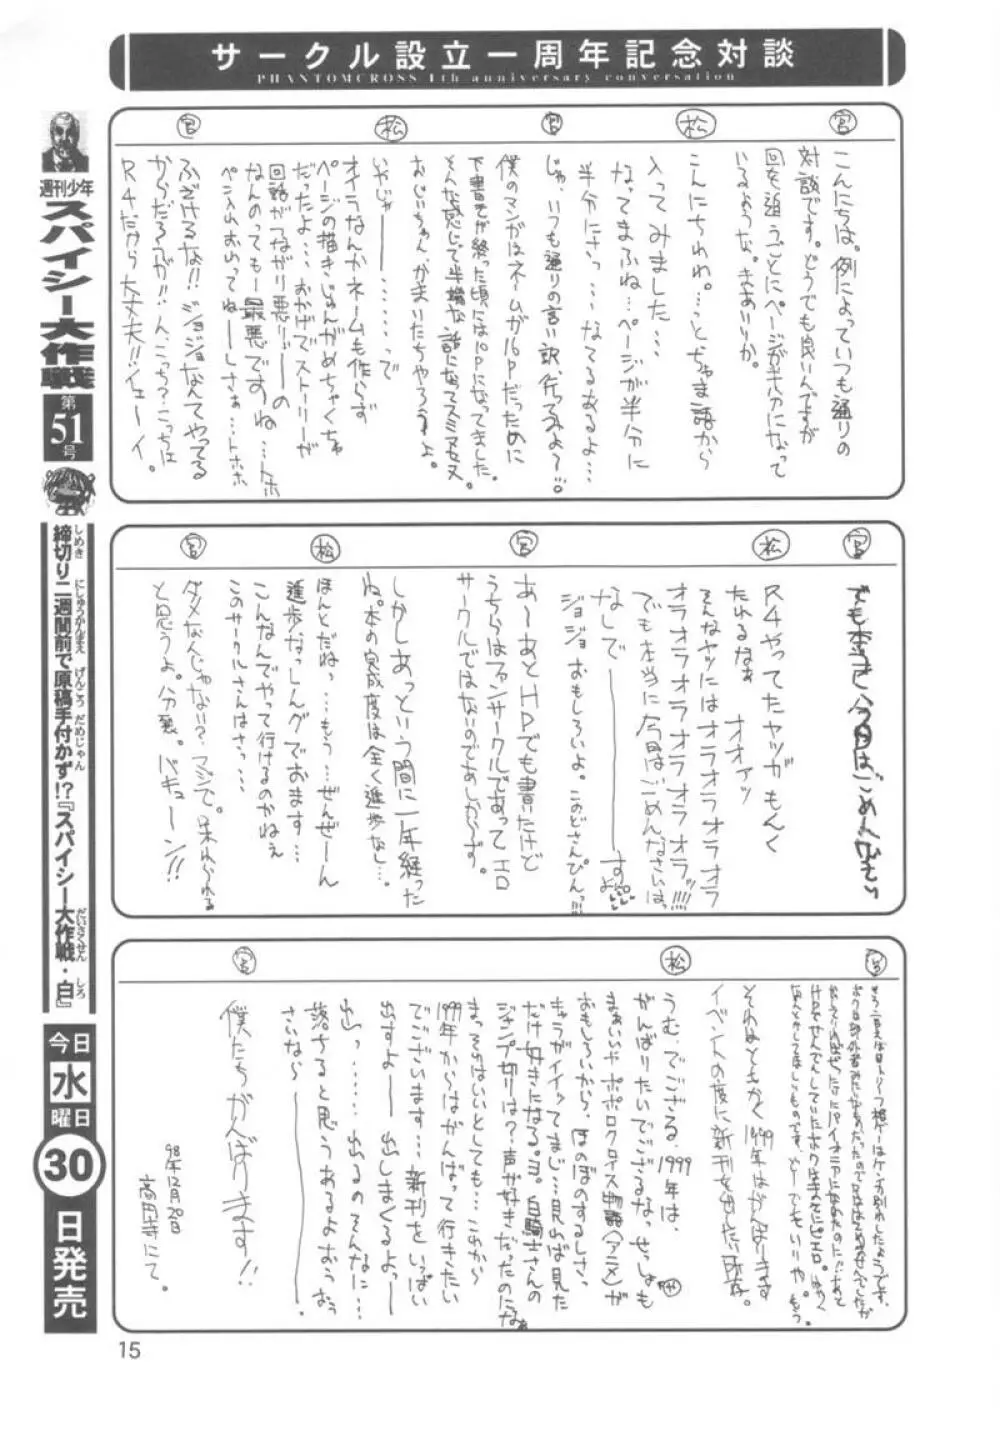 サークル設立一周年記念対談
PHANTOMCROSS 1th anniversary conversation
宮
こんにちは。例によっていつも通りの
対談です。どうでも良いんですが
回を追うごとにページが半分になって
いるような。きあいりか。
松
こんにちわわ。…っとちゃま語から
入ってみました…
なってまふね…ページが半分に
半分にさっ…なてるあるよ…
宮
じゃ、いつも通りの言い訳、行ってみよ〜!!。
僕のマンガはネームが16Pだったために
下書きが終った頃には10Pになってました。
そんな感じで半端な話になってスミマセヌ
おじいちゃん、かまいたちやろうよ。
松
いやじゃーーーで
オイラなんかネームも作らず
ページの描きじゅんがめちゃくちゃ
だったよ…おかげでストーリーが
回話がつながり悪リーの
なんのっても一最悪ですね…トホ
ペン入れおいてねーしさぁ…トホホ
宮
ふざけるな!!ジョジョなんてやってる
からだろうが!!んこっち?こっちは
R4だから大丈夫!!イェーイ。
宮
でも本当に今回はごめんなさい
松
R4やってたヤツがもんく
たれるなぁ オオァッ
そんなヤツにはオラオラオラオラ
オラオラオラオラオラオラオラッ!!!!
でも本当に今回はごめんなさいは
なしでーーーすよ
ジョジョおもしろいよ。このどさんぴんっ!!!
宮
あ〜あとHPでも書いたけど
うちらはファンサークルであってエロ
サークルではないのであしからず。
しかしあっという間に一年経った
ね。本の完成度は全く進歩なし…
松
ほんとだねっ…もう…ぜんぜーん
進歩なっしんグでおます…
こんなんでやって行けるのかねぇ
このサークルさんはさっ…
宮
ダメなんじゃない?マジで。呆れられる
と思うよ。分裂。バキューン!!
宮
それはともかく1999年はがんばります
イベントの度に新刊を出したい所存。
松
うむ。でござる、1999年は、
がんばりたいでござるなっせっしょも
まぁいいやポポロクロイス物語(アニメ)が
おもしろいから、ほのぼのするしさ、
キャラがイイッてまじ…見山ば見た
だけ好きになる。ヨ。白騎士さんの
ジャンプ切りは?声が好きだったのになぁ
まっそれはいいとしても…これから
1999年からはがんばって行きたい
でございます…新刊をいっぱい
出すよーー出しまくるよっー
出っ……出るのそんなに…
落ちると思うあるよおぅおぅ
さいなら〜ーーー。
宮
僕たちがんばります!!
98年12月20日
高円寺にて。
週刊少年
スパイシー大作戦
第
51
号
締切り二週間前で原稿手付かず!?『スパイシー大作戦・白』
しめき にしゅうかんまえ げんこう だめじゃん だいさくせん しろ
今日
水
曜日
30
日発売
15